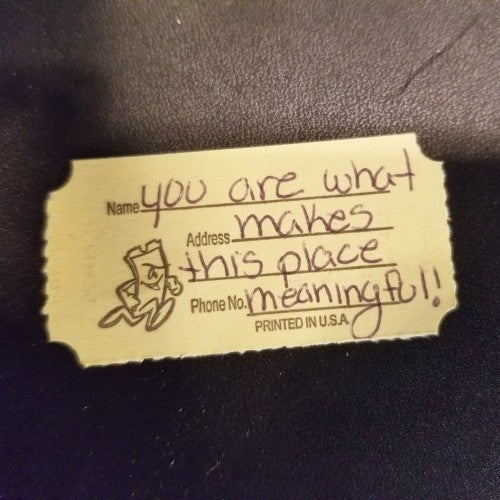 Name you are what
Address makes
this place
Phone No. meaningful!
PRINTED IN U.S.A.